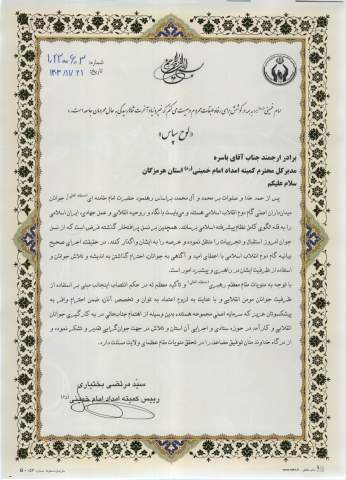 شماره:
تاریخ:
«لوح سپاس»
برادر ارجمند جناب آقای یاسره
مدیرکل محترم کمیته امداد امام خمینی (ره) استان هرمزگان
سلام علیکم
پس از حمد خدا و صلوات بر محمد و آل محمد، براساس رهنمود حضرت امام خامنه ای جوانان
میدان‌داران اصلی گام دوم انقلاب اسلامی هستند و می‌بایست با نگاه و روحیه انقلابی و عمل جهادی، ایران اسلامی
را به قله الگوی کامل نظام پیشرفته اسلامی برسانند. همچنین بر نسل پرافتخار گذشته فرض است که از نسل
جوان امروز استقبال و تجربیات را منتقل نموده و عرصه را به ایشان واگذار کند. در حقیقت اجرای صحیح
بیانیه گام دوم انقلاب اسلامی با اعطای امید و آگاهی به جوانان، احترام گذاشتن به اندیشه و تلاش جوانان و
استفاده از ظرفیت ایشان در راهبری و پیشبرد امور است.
با توجه به منویات مقام معظم رهبری و تأکید معظم له در حکم انتصاب اینجانب مبنی بر استفاده از
ظرفیت جوانان مومن انقلابی و با عنایت به لزوم اعتماد به توان و تخصص آنان، ضمن احترام وافر به
پیشکسوتان عزیز که سرمایه اصلی مجموعه هستند، بدین وسیله از اهتمام جنابعالی در به کارگیری جوانان
انقلابی و کارآمد در حوزه ستادی و اجرایی آن استان و تلاش در جهت جوان‌گرایی تقدیر و تشکر نموده و
از درگاه خداوند منان توفیق مضاعف را در تحقق منویات مقام عظمای ولایت مسئلت دارم.
سید مرتضی بختیاری
رییس کمیته امداد امام خمینی (ره)